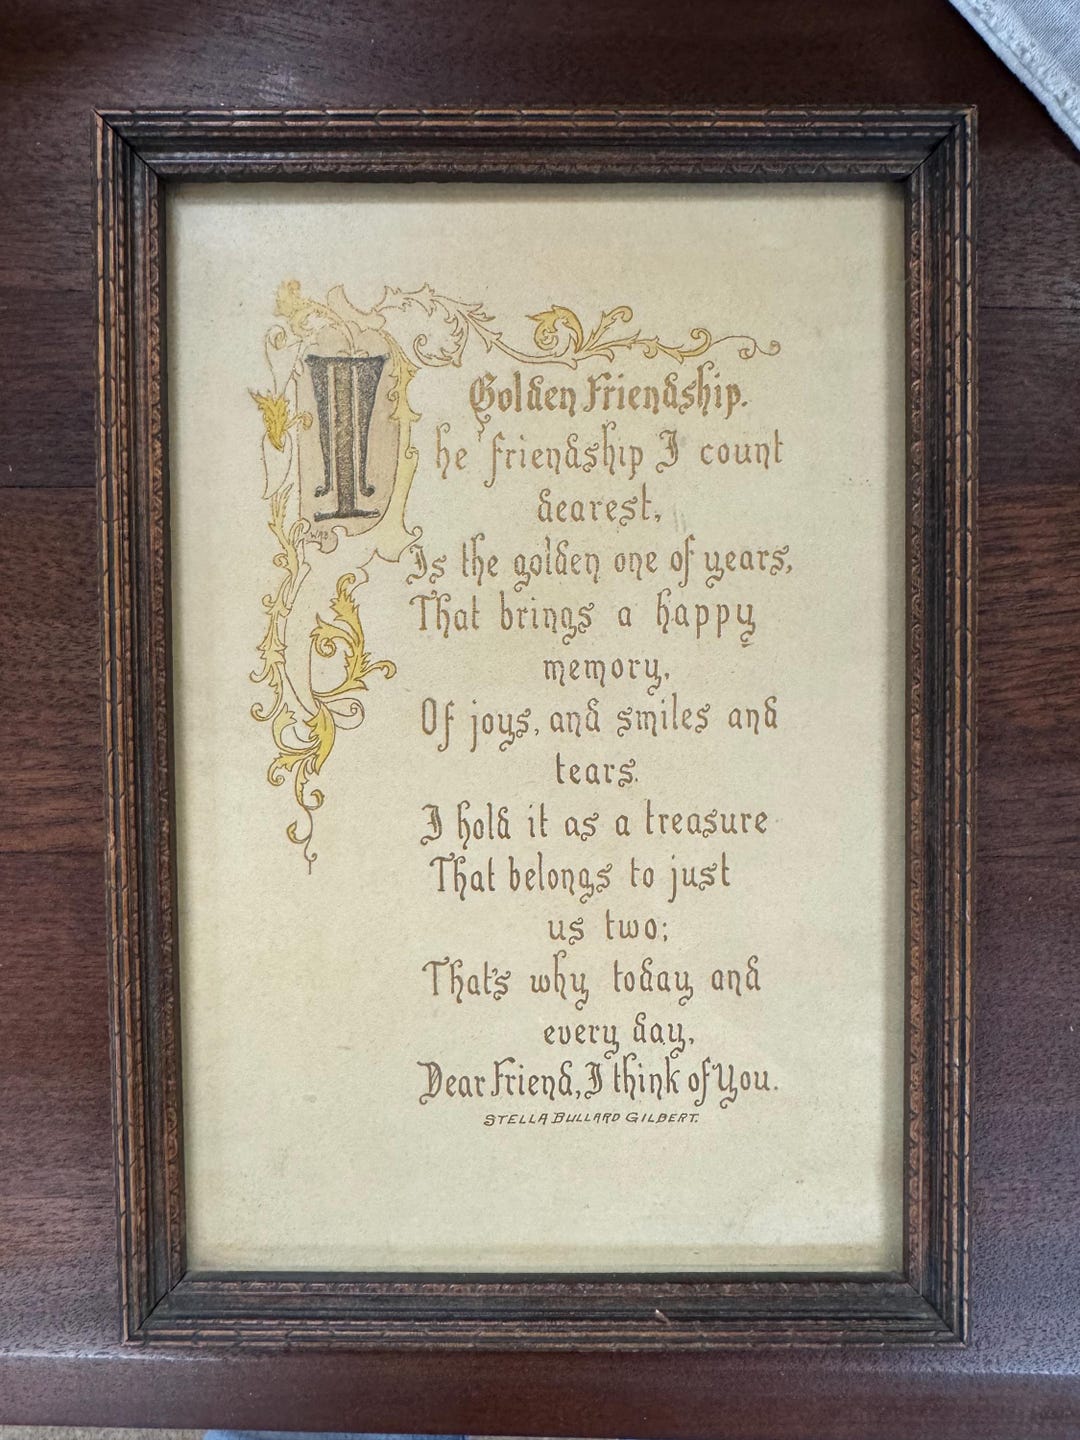 Golden Friendship.
The friendship I count
dearest,
Is the golden one of years,
That brings a happy
memory,
Of joys, and smiles and
tears.
I hold it as a treasure
That belongs to just
us two;
That's why today and
every day,
Dear Friend, I think of You.
STELLA BULLARD GILBERT.